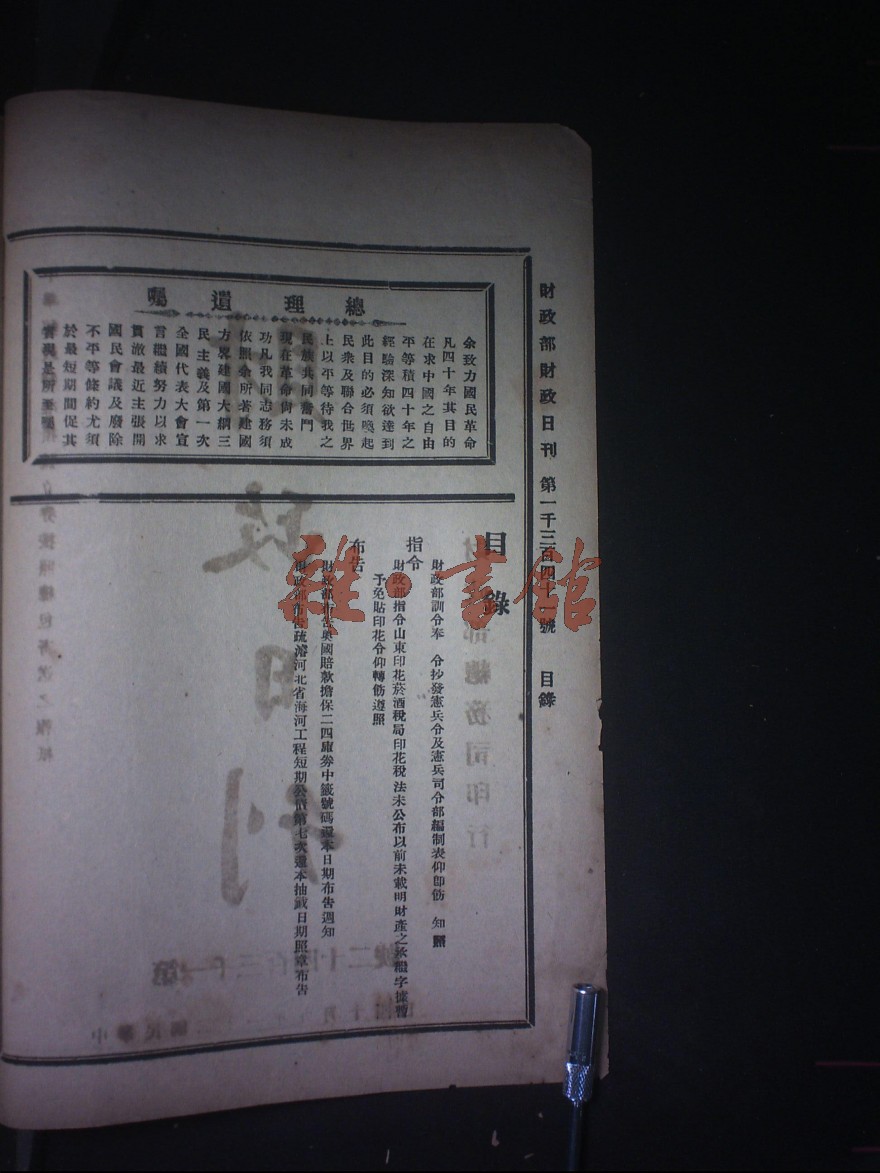 財政部財政日刊 第一千三百四十 號 目錄
總理遺囑
余致力國民革命
凡四十年其目的
在求中國之自由
平等積四十年之
經驗深知欲達到
此目的必須喚起
民衆及聯合世界
上以平等待我之
民族共同奮鬥
現在革命尙未成
功凡我同志務須
依照余所著建國
方畧建國大綱三
民主義及第一次
全國代表大會宣
言繼續努力以求
貫澈最近主張開
國民會議及廢除
不平等條約尤須
於最短期間促其
實現是所至囑
目錄
財政部訓令奉 令抄發憲兵令及憲兵司令部編制表仰卽飭 知照
指令
財政部指令山東印花菸酒稅局印花稅法未公布以前未載明財產之承繼字據暫
予免貼印花令仰轉飭遵照
布告
財政部布告奥國賠款擔保二四庫券中籤號碼還本日期布告週知
財政部布告疏濬河北省海河工程短期公債第七次還本抽籤日期照章布告
雜·書館